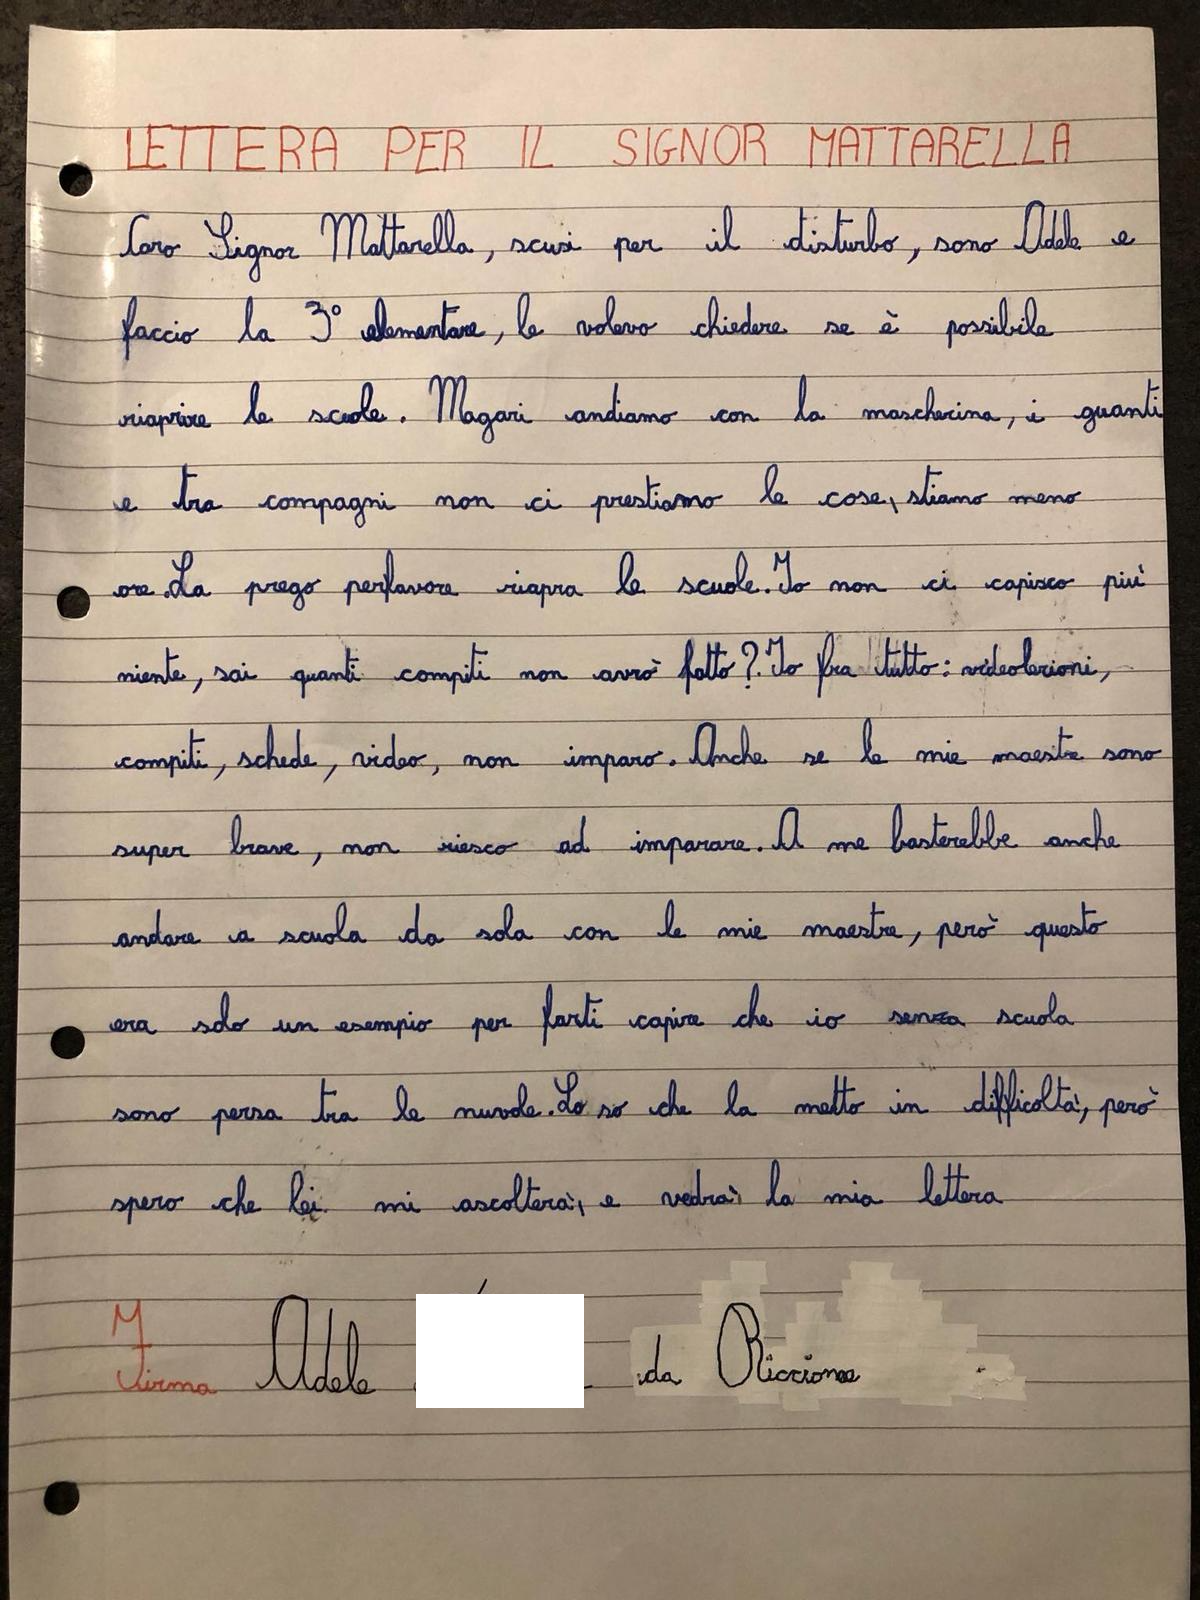 LETTERA PER IL SIGNOR MATTARELLA
Caro Signor Mattarella, scusi per il disturbo, sono Adele e
faccio la 3° elementare, le volevo chiedere se è possibile
riaprire le scuole. Magari andiamo con la mascherina, i guanti
e tra compagni non ci prestiamo le cose, stiamo meno
ore. La prego perfavore riapra le scuole. Io non ci capisco più
niente, sai quanti compiti non avrò fatto? Io fra tutto: videolezioni,
compiti, schede, video, non imparo. Anche se le mie maestre sono
super brave, non riesco ad imparare. A me basterebbe anche
andare a scuola da sola con le mie maestre, però questo
era solo un esempio per farti capire che io senza scuola
sono persa tra le nuvole. Lo so che la metto in difficoltà, però
spero che lei mi ascolterà, e vedrà la mia lettera
Firma Adele da Riccione